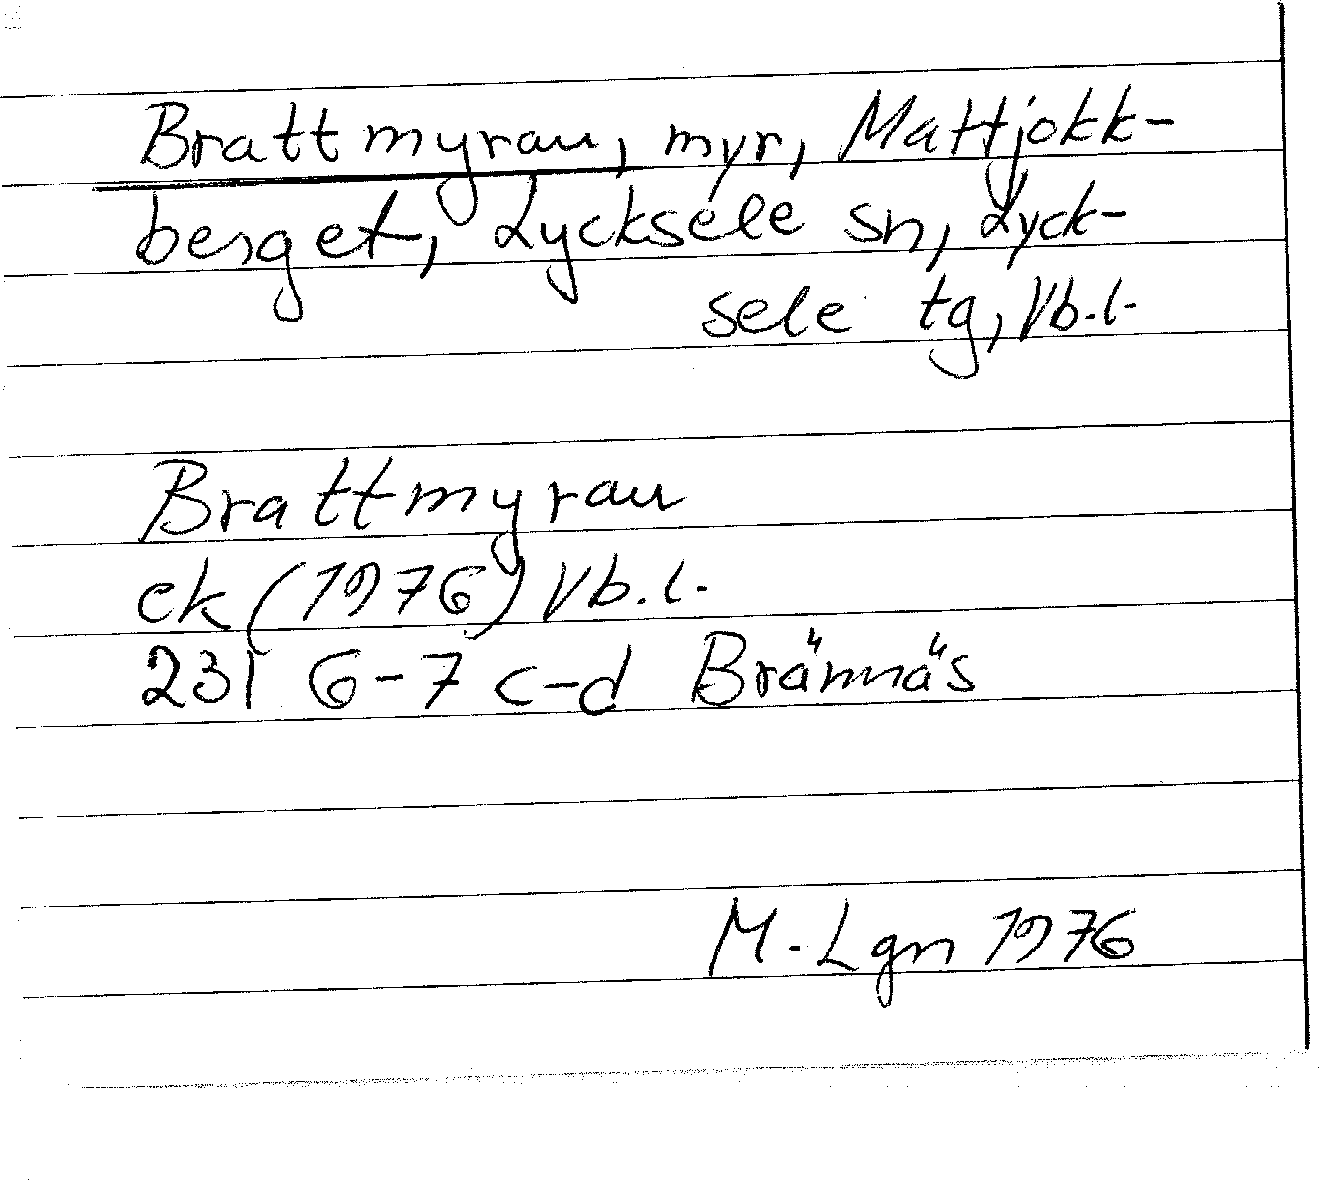 Brattmyran, myr, Mattjokk-
berget, Lycksele sn, Lyck-
sele tg, Vb.l.
Brattmyran
ek (1976) Vb.l.
23I 6-7 c-d Brännäs
M. Lgn 1976